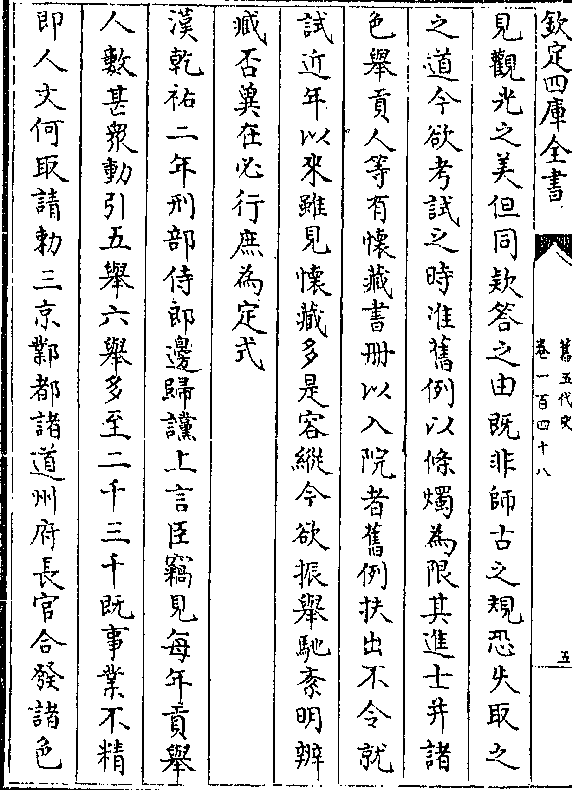 欽定四庫全書
舊五代史
卷一百四十八
五
見觀光之美但同欵答之由既非師古之規恐失取之
之道今欲考試之時准舊例以條燭為限其進士并諸
色舉貢人等有懷藏書冊以入院者舊例扶出不令就
試近年以來雖見懷藏多是容縱今欲振舉馳紊明辨
臧否冀在必行庶為定式
漢乾祐二年刑部侍郎邊歸讜上言臣竊見每年貢舉
人數甚衆動引五舉六舉多至二千三千既事業不精
即人文何取請勅三京鄴都諸道州府長官合發諸色